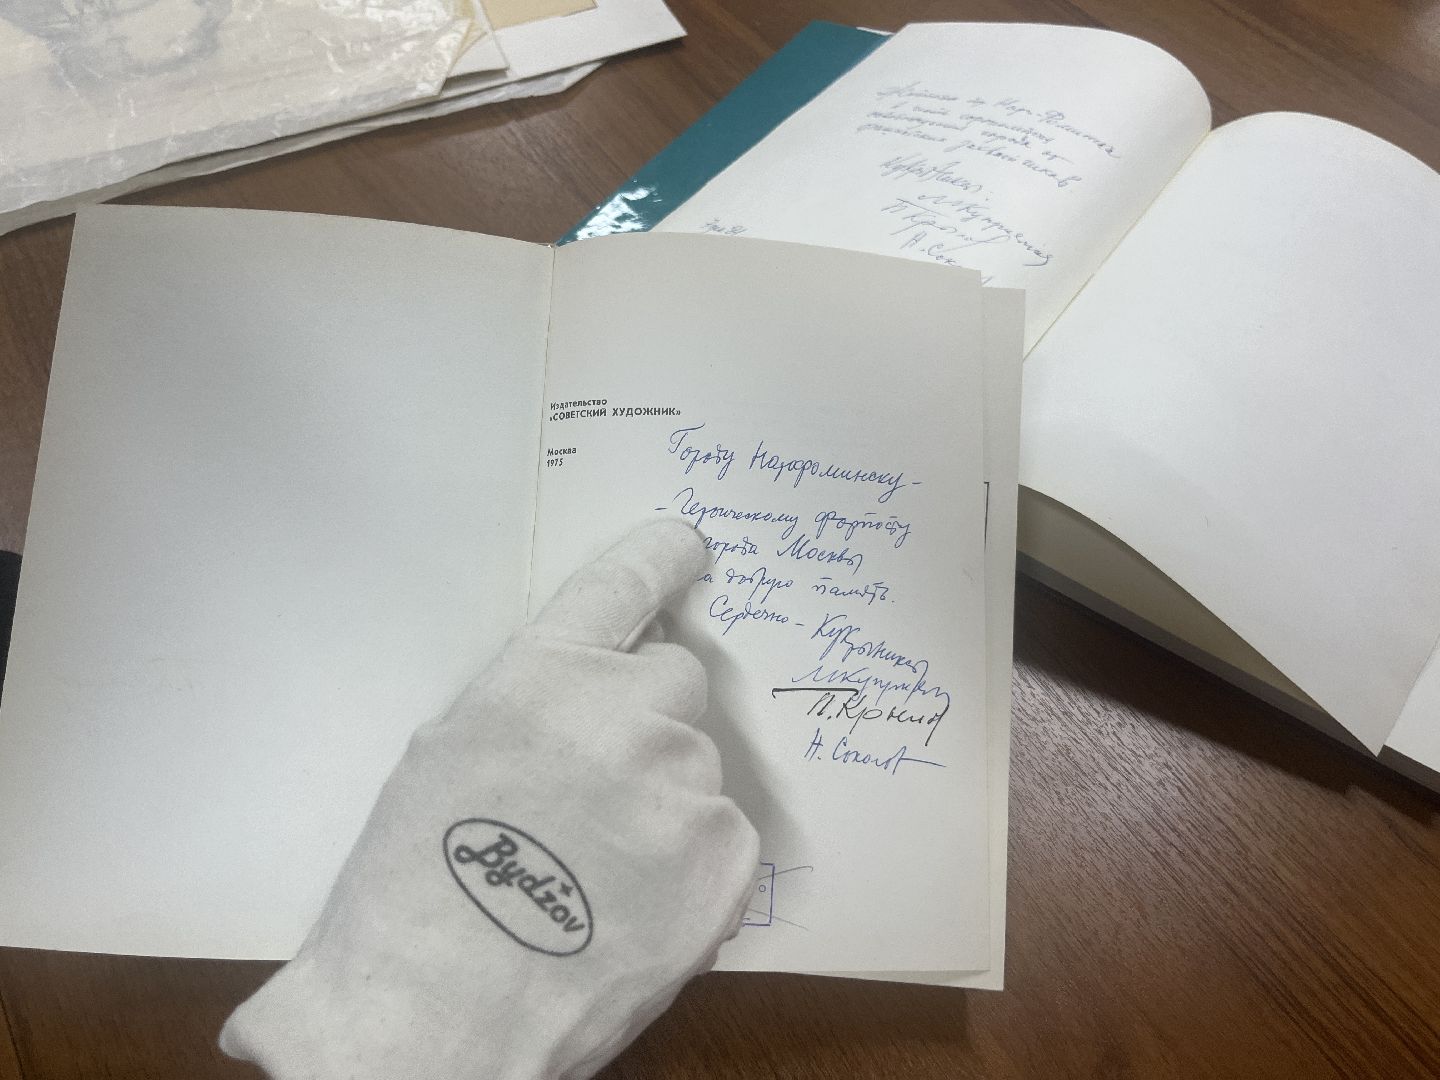 Издательство
«СОВЕТСКИЙ ХУДОЖНИК»
Москва
1975
Городу Нарофоминску –
– Героическому форпосту
города Москвы
а добрую память.
Сердечно – Кукрыниксы
МКуприянов
П. Крылов
Н. Соколов
Bydžov
Наро-Фоминска
города от
Кукрыниксы:
МКуприянов
П Крылов
Н. Сок